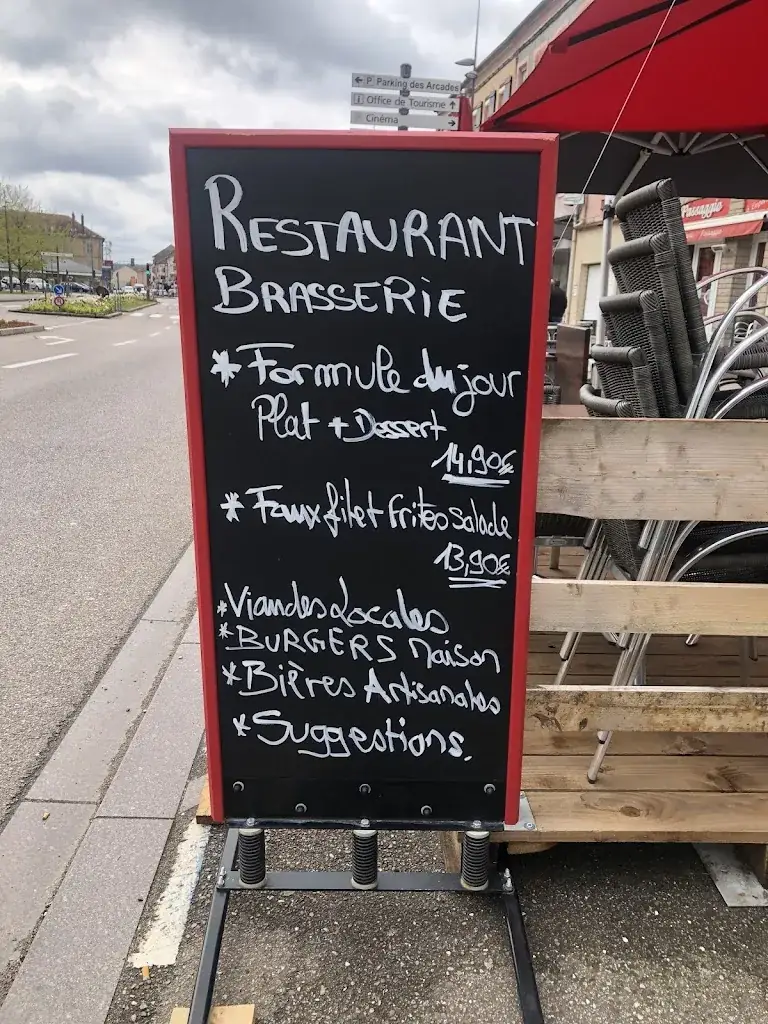 P Parking des Arcades
i Office de Tourisme
Cinéma
RESTAURANT
BRASSERiE
* Formule du jour
Plat + Dessert
14,90€
* Faux filet Frites Salade
13,90€
* Viandes Locales
* BURGERS Maison
* Bières Artisanales
* Suggestions.
Passaggio